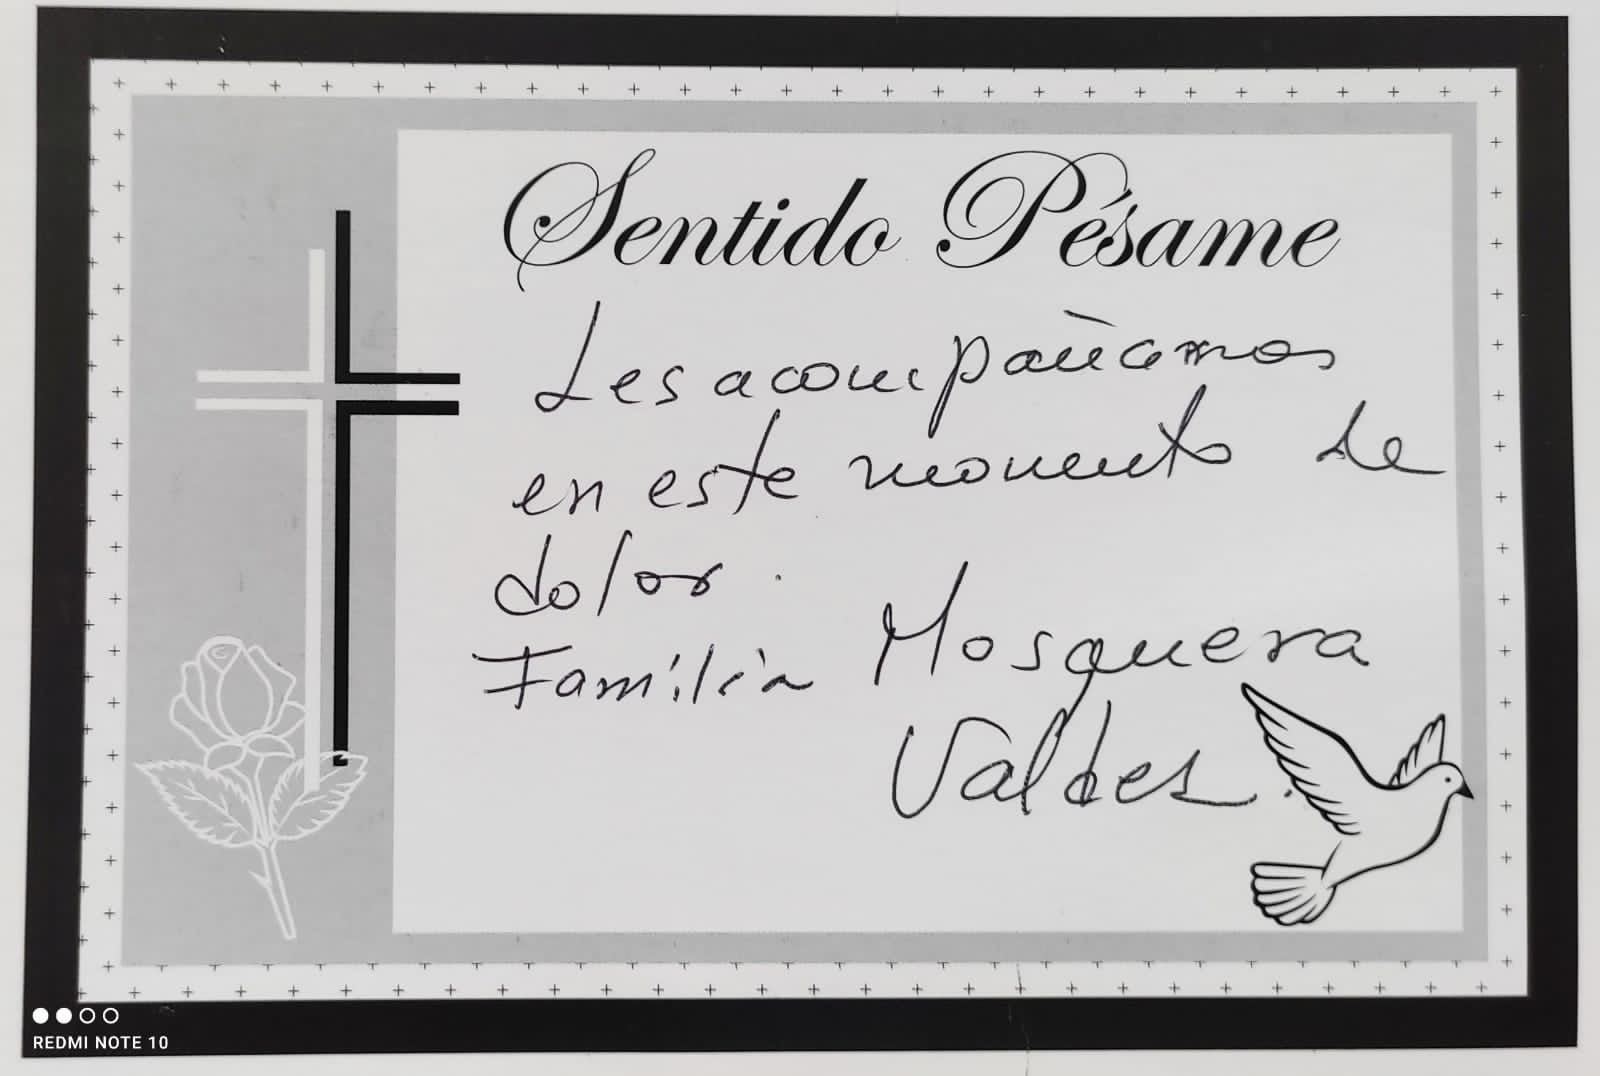 Sentido Pésame
Les acompañamos
en este momento de
dolor.
Familia Mosquera
Valdes.
REDMI NOTE 10